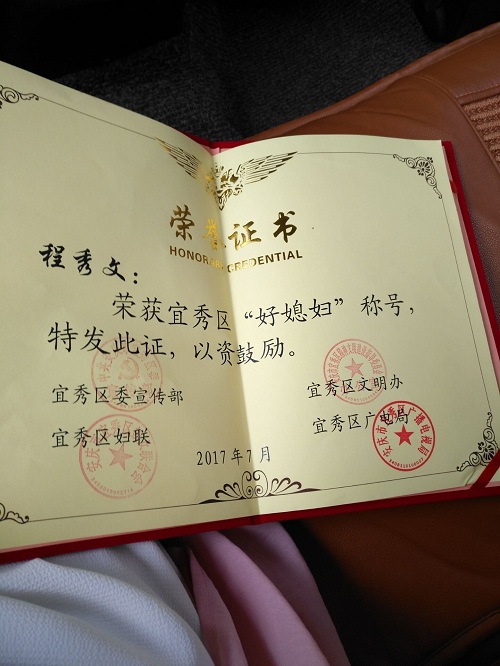 荣誉证书
HONORARY CREDENTIAL
程秀文：
荣获宜秀区“好媳妇”称号，
特发此证，以资鼓励。
宜秀区委宣传部
宜秀区文明办
宜秀区妇联
宜秀区广电局
2017年7月
安庆市宜秀区广播电视局